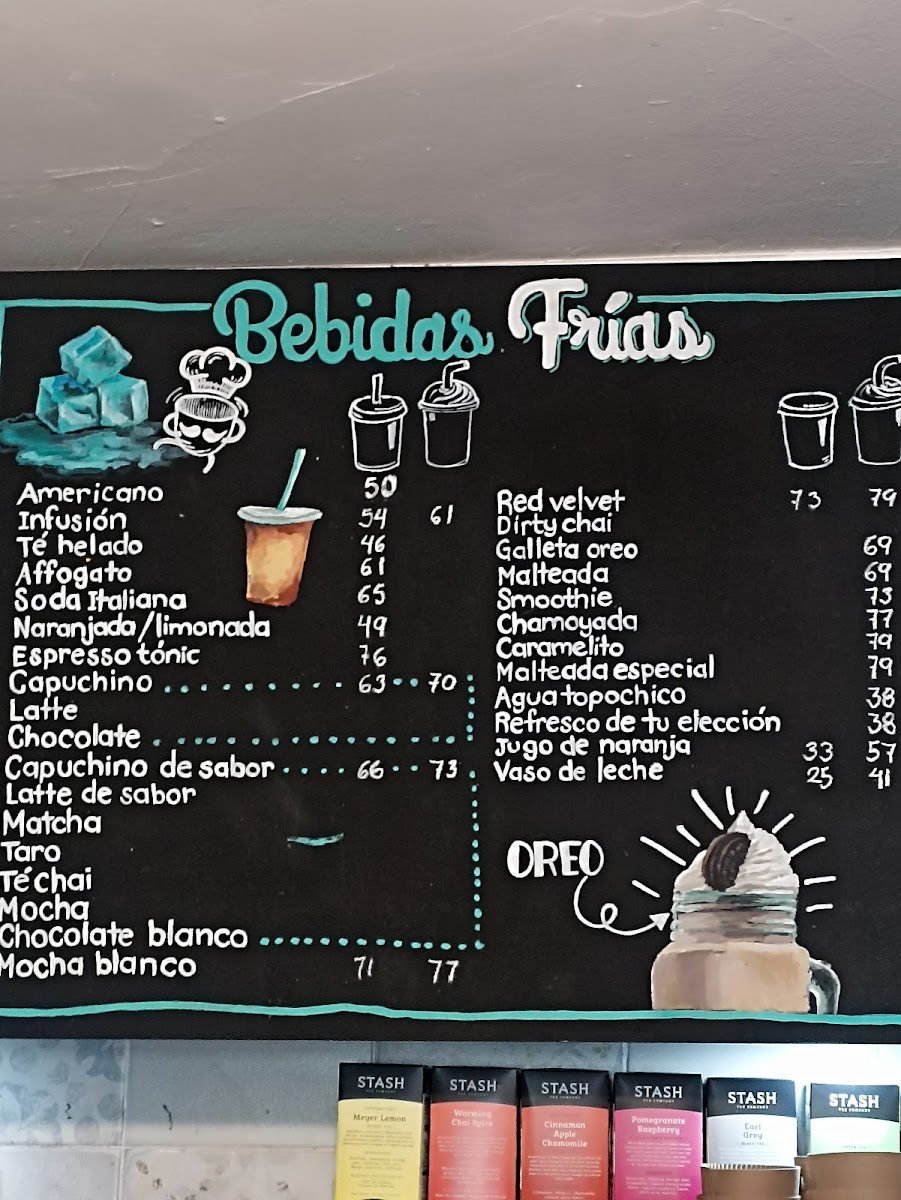 Bebidas Frías
Americano 50
Infusión 54 61
Té helado 46
Affogato 61
Soda Italiana 65
Naranjada/limonada 49
Espresso tónic 76
Capuchino 63 70
Latte
Chocolate
Capuchino de sabor 66 73
Latte de sabor
Matcha
Taro
Té chai
Mocha
Chocolate blanco
Mocha blanco 71 77
Red velvet 73 79
Dirty chai
Galleta oreo 69
Malteada 69
Smoothie 73
Chamoyada 77
Caramelito 79
Malteada especial 79
Agua topochico 38
Refresco de tu elección 38
Jugo de naranja 33 57
Vaso de leche 25 41
OREO
STASH
TEA COMPANY
Meyer Lemon
STASH
TEA COMPANY
Warming
Chai Spice
STASH
TEA COMPANY
Cinnamon
Apple
Chamomile
STASH
TEA COMPANY
Pomegranate
Raspberry
STASH
TEA COMPANY
Earl
Grey
BLACK TEA
STASH
TEA COMPANY